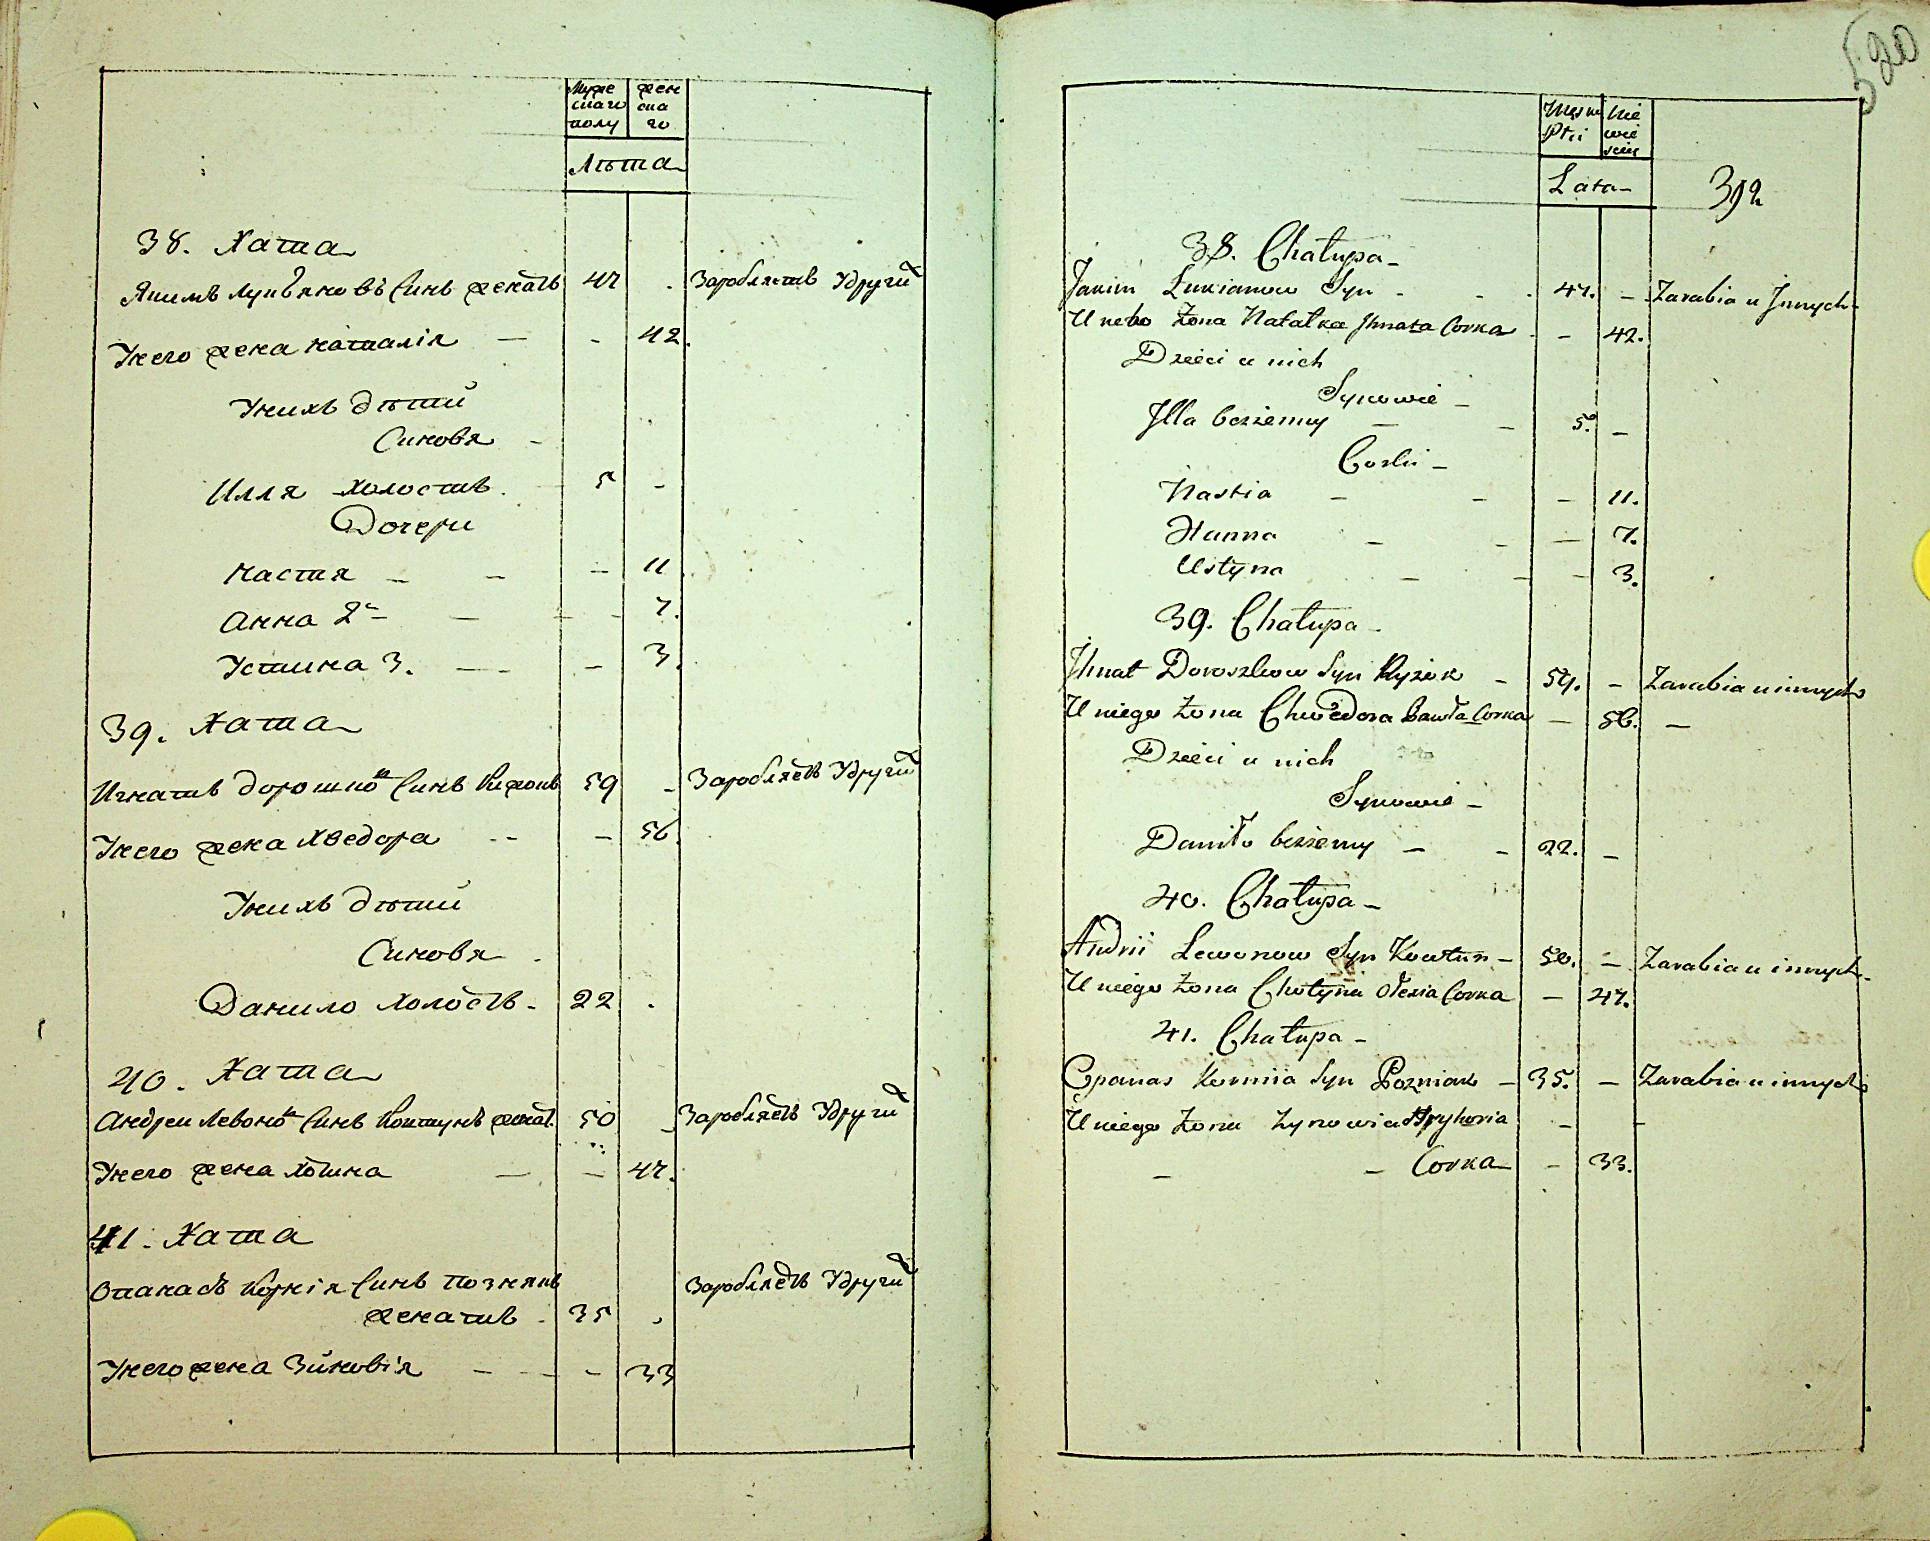 Муже
скаго
полу
жен
ска
го
Лѣта
38. Хата
Якимъ Лукъяновъ Синъ женатъ 47 . Заробляетъ Удругих
Унего жена Наталія — - 42.
Унихъ дѣтей
Синовя -
Илля холостъ. 5 -
Дочери
Настя - - - 11
Анна 2я - - 7.
Устина 3. - - 3.
39. Хата
Игнатъ Дорошков Синъ Кижокъ 59 - Заробляетъ Удругих
Унего жена Хведора - - - 56.
Унихъ дѣтей
Синовя .
Данило холостъ - 22 .
40. Хата
Андрей Левонов Синъ Ковтунъ женат. 50 - Заробляетъ Удругих
Унего жена Хотина — - 47.
41. Хата
Опанасъ Корнія Синъ Познякъ Заробляетъ Удругих
женатъ . 35 .
Унего жена Зѣновія - - - 33
520
Męsk
Płci
Nie
wie
sciey
Lata
392
38. Chałupa -
Jakim Łukianow Syn - - . 47. - Zarabia u Jnnych -
U nebo Żona Natałka Jhnata Corka - - 42.
Dzieci u nich
Synowie -
Jlla bezżenny - - 5. -
Corki -
Nastia - - - 11.
Hanna - - - 7.
Ustyna - - - 3.
39. Chałupa -
Jhnat Doroszkow Syn Kyżok - 59. - Zarabia u innych
U niego Żona Chwedora Pawła Corka - 56. -
Dzieci u nich
Synowie -
Daniło bezżenny - - 22. -
40. Chałupa -
Andrii Lewonow Syn Kowtun - 50. - Zarabia u innych -
U niego Żona Chotyna Ołexia Corka - 47.
41. Chałupa -
Opanas Kornija Syn Pozniak - 35. - Zarabia u innych
U niego Żona Zynowia Hryhoria - -
- - Corka - - 33.